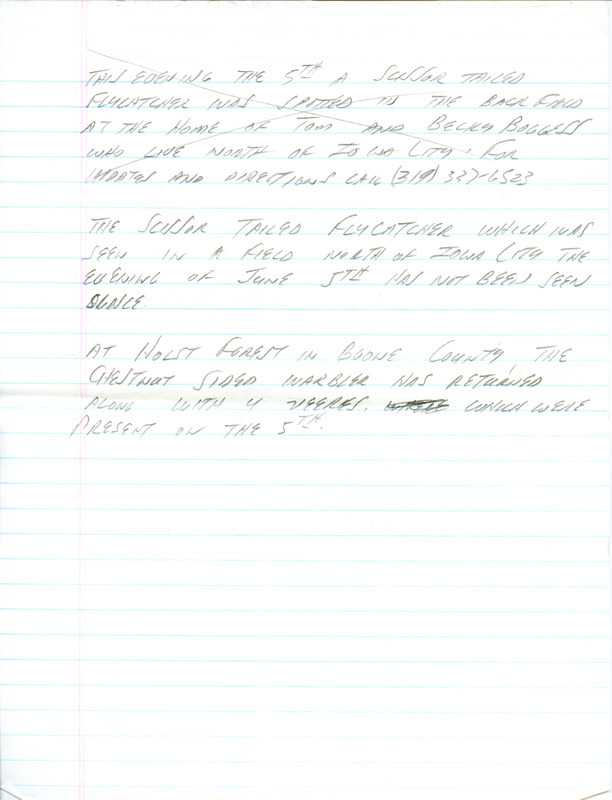 THIS EVENING THE 5TH A SCISSOR TAILED
FLYCATCHER WAS SPOTTED IN THE BACK FIELD
AT THE HOME OF TOM AND BECKY BOGGESS
WHO LIVE NORTH OF IOWA CITY. FOR
UPDATES AND DIRECTIONS CALL (319) 337-6523
THE SCISSOR TAILED FLYCATCHER WHICH WAS
SEEN IN A FIELD NORTH OF IOWA CITY THE
EVENING OF JUNE 5TH HAS NOT BEEN SEEN
SINCE.
AT HOLST FOREST IN BOONE COUNTY, THE
CHESTNUT SIDED WARBLER HAS RETURNED
ALONG WITH 4 VEERES. WHICH WERE
PRESENT ON THE 5TH.